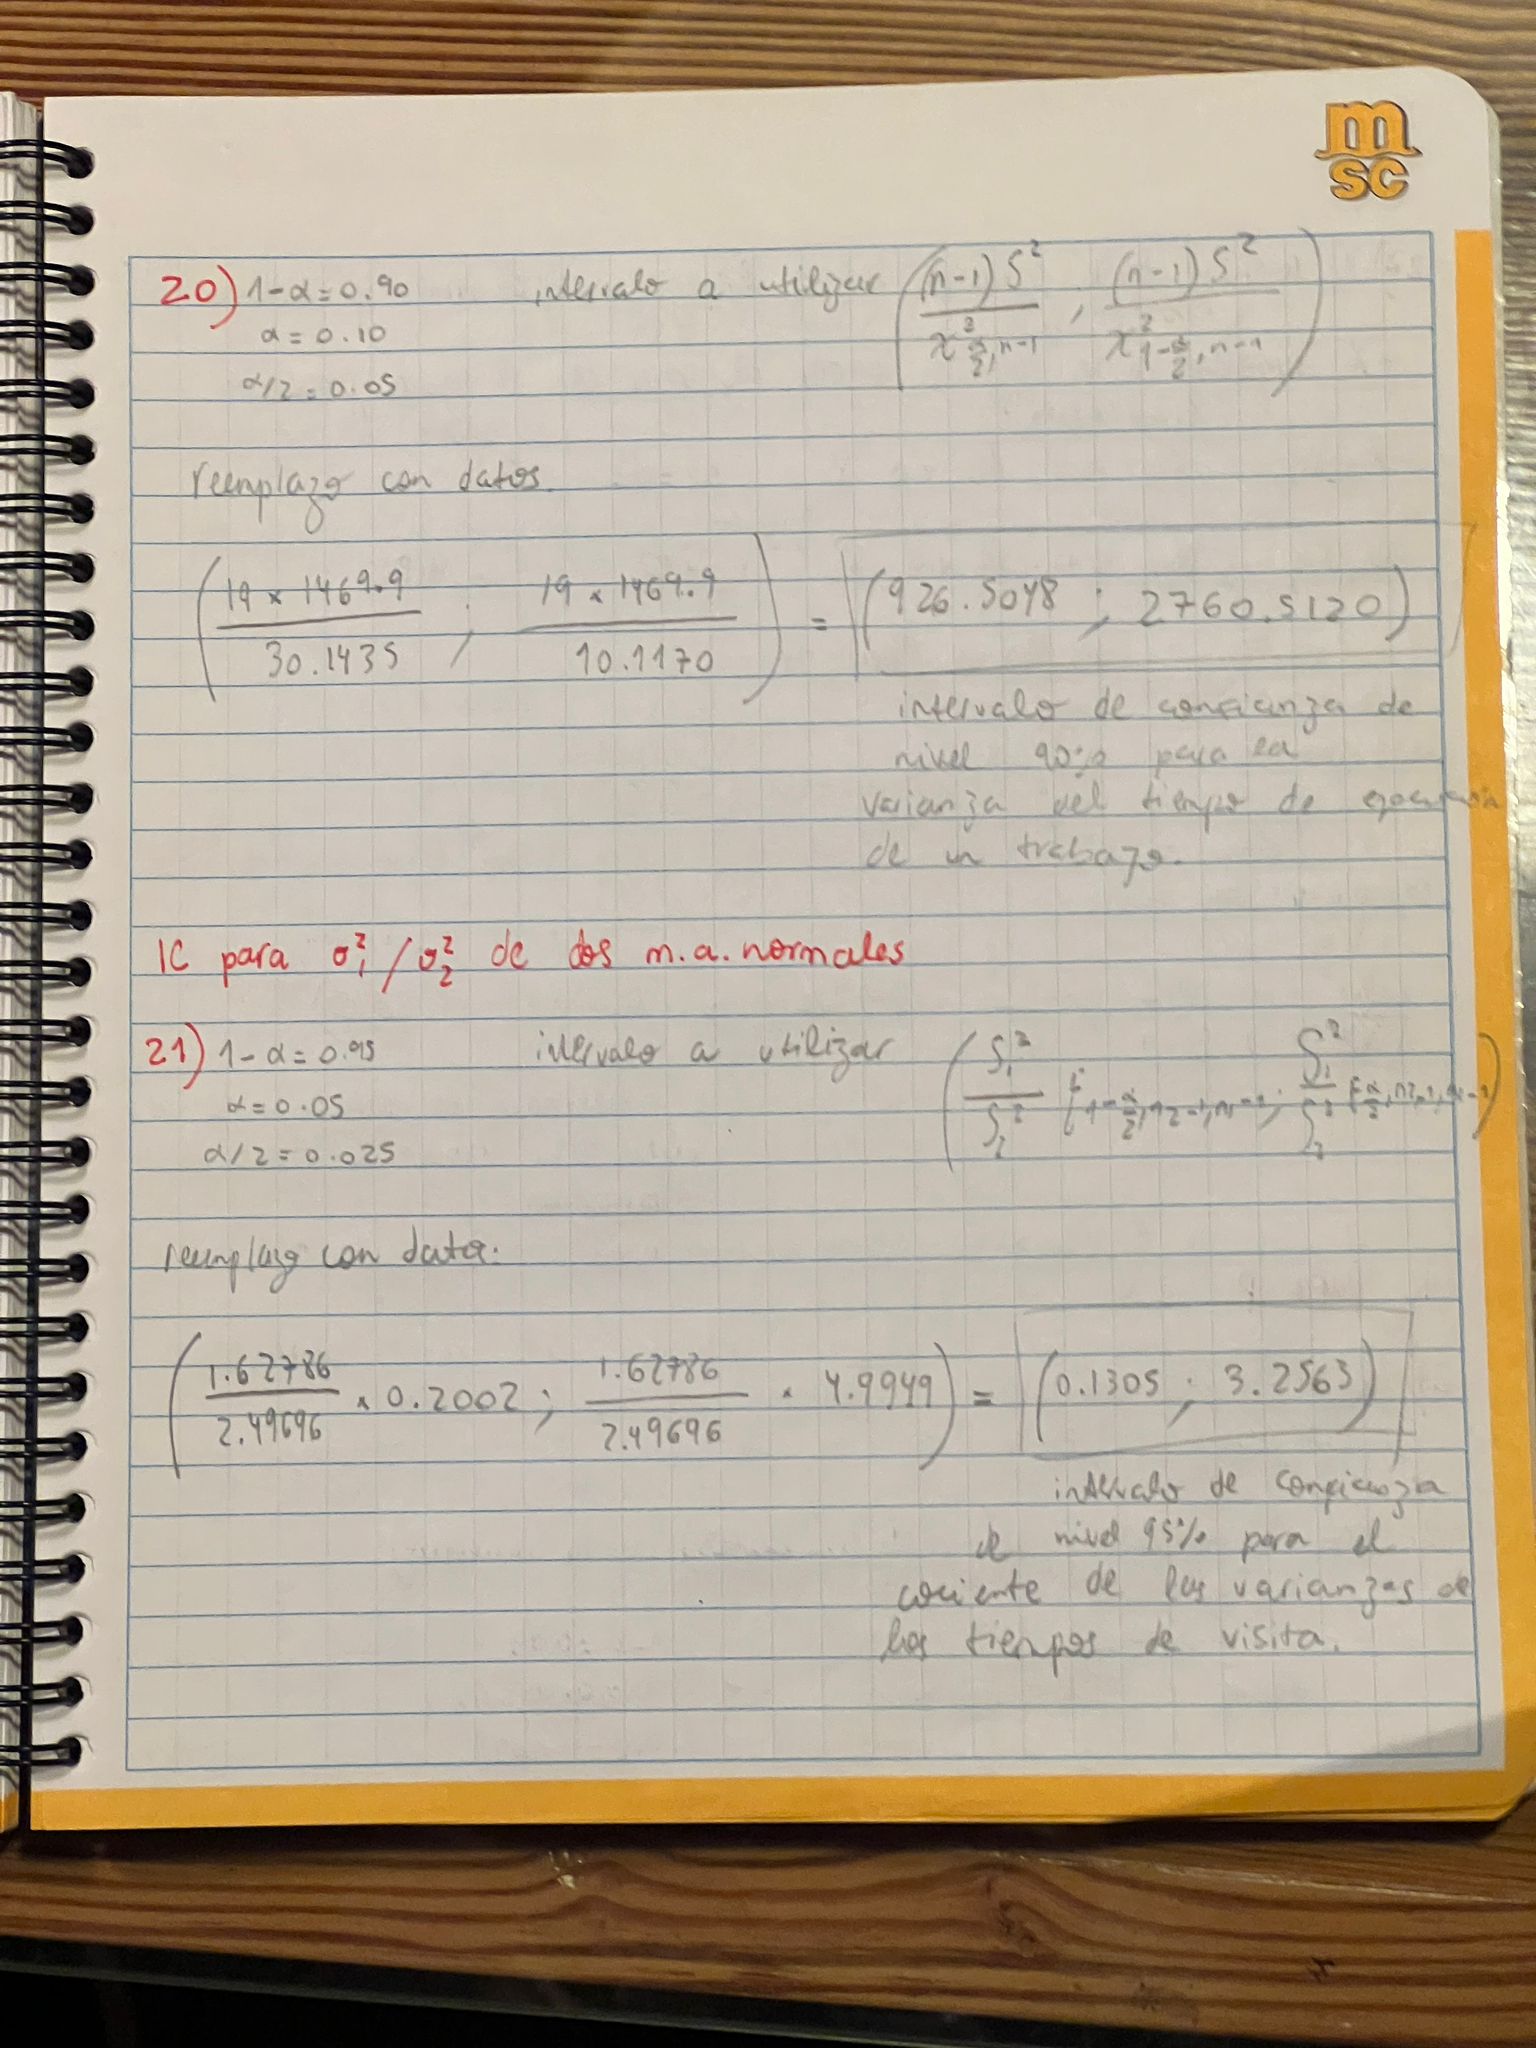 msc
20) 1-α=0.90 intervalo a utilizar ( (n-1)S² / χ² α/2, n-1 , (n-1)S² / χ² 1-α/2, n-1 )
α=0.10
α/2=0.05
reemplazo con datos.
( 19 × 1469.9 / 30.1435 ; 19 × 1469.9 / 10.1170 ) = (926.5048 ; 2760.5120)
intervalo de confianza de
nivel 90% para la
varianza del tiempo de
de un trabajo.
IC para σ₁²/σ₂² de dos m.a. normales
21) 1-α=0.95 intervalo a utilizar ( S₁² / S₂² F 1-α/2, n2-1, n1-1 ; S₁² / S₂² F α/2, n2-1, n1-1 )
α=0.05
α/2=0.025
reemplazo con datos:
( 1.62786 / 2.49696 × 0.2002 ; 1.62786 / 2.49696 × 4.9949 ) = (0.1305 ; 3.2563)
intervalo de confianza
de nivel 95% para el
cociente de las varianzas de
los tiempos de visita.